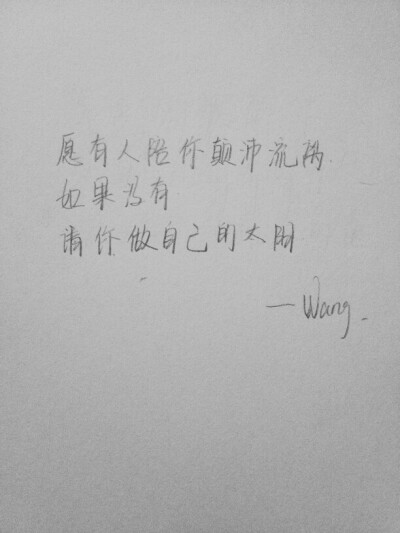 愿有人陪你颠沛流离.
如果没有
请你做自己的太阳
—Wang.